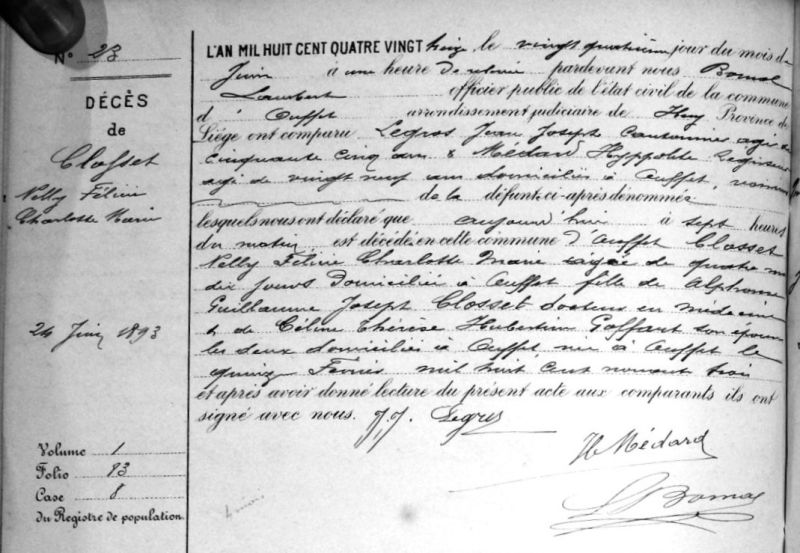 N° 23
DÉCÈS
de
Closset
Nelly Féline
Charlotte Marie
24 Juin 1893
Volume 1
Folio 83
Case 8
du Registre de population
L'AN MIL HUIT CENT QUATRE VINGT treize le vingt quatrième jour du mois de
Juin à une heure de relevée pardevant nous Bomal
Lambert officier public de l'état civil de la commune
d' Ouffet arrondissement judiciaire de Huy Province de
Liége ont comparu Legros Jean Joseph Cantonnier agé de
cinquante cinq ans & Médard Hyppolite
agé de vingt neuf ans domiciliés à Ouffet, voisins
de la défunte ci-après dénommée
lesquels nous ont déclaré que aujourd'hui à sept heures
du matin est décédée en cette commune d'Ouffet Closset
Nelly Féline Charlotte Marie agée de quatre mois
dix jours domiciliée à Ouffet fille de Alphonse
Guillaume Joseph Closset docteur en médecine
& de Céline Thérèse Hubertine Goffart son épouse
les deux domiciliés à Ouffet, née à Ouffet le
quinze Février mil huit cent nonante trois
et après avoir donné lecture du présent acte aux comparants ils ont
signé avec nous. J.J. Legros
H Médard
L Bomal